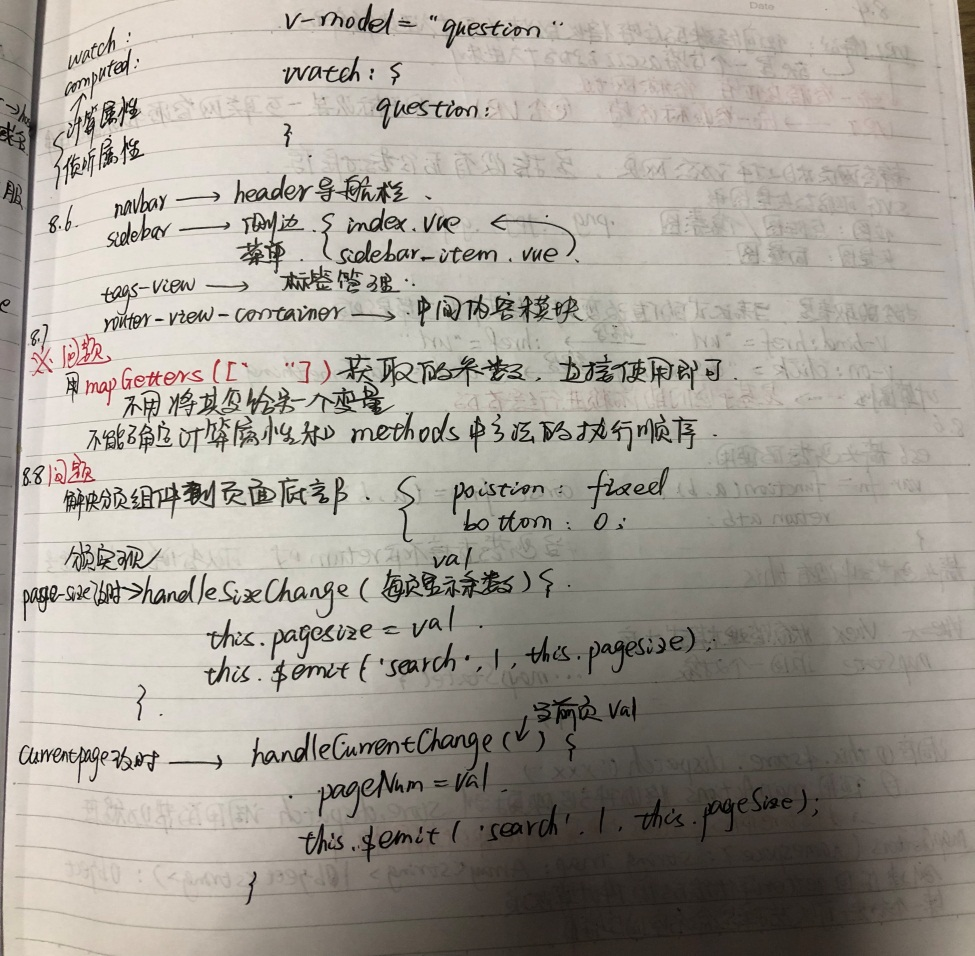 v-model = "question"
watch :
computed :
计算属性
侦听属性
watch : {
question :
}
8.6. navbar → header 导航栏 .
sidebar → 侧边 . { index.vue ←
菜单 . { sidebar-item . vue
tags-view → 标签管理 .
router-view-container → 中间内容模块
8.7
※ 问题
用 mapGetters ([" "]) 获取的参数 , 直接使用即可 .
不用将其复给另一个变量
不能确定计算属性和 methods 中方法的执行顺序 .
8.8 问题
解决分页组件到页面底部 . { poistion : fixed
bottom : 0 ;
分页实现
val
page-size 改时 → handleSizeChange ( 每页显示条数 ) {
this . pagesize = val .
this . $emit ( 'search' , 1 , this . pagesize ) ;
} .
当前页 val
currentpage 改时 → handleCurrentChange ( ) {
pageNum = val .
this . $emit ( 'search' , 1 , this . pageSize ) ;
}
服
e